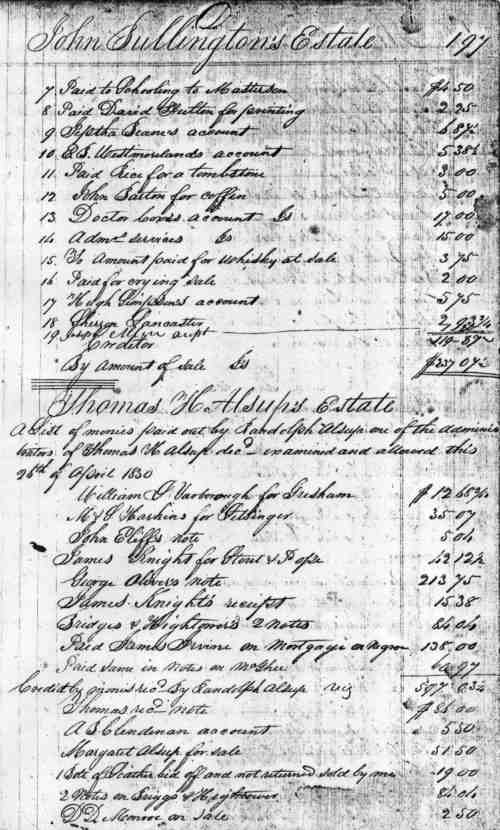 John Fullington's Estate 197
7 Paid to Schooling to Matterson $4.50
8 Paid David for printing 2 25
9 Jeptha account 6 87½
10 E. S. Westmorelands account 5 38½
11 Paid Rice for a tombstone 3 00
12 John Patton for coffin 5 00
13 Doctor account 17 00
14 Admr. services 15 00
15 To Amount paid for Whisky at sale 3 75
16 Paid for crying sale 2 00
17 Hugh Simpson's account 5 75
18 Lancaster
19 recpt
Creditor
By Amount of sale $337 07½
Thomas H. Alsup's Estate
A List of monies paid out by Randolph Alsup one of the adminis
trators of Thomas H Alsup decd. examined and allowed this
26th of April 1830
William Yarborough for Gresham $12 65¾
Haskins for 35 07
John Cliff's note 5 04
James Knight for 42 12½
George note 213 75
James Knights receipt 15.38
Bridges & Hightowers 2 Notes 84 04
Paid James Irvine on Mortgage on Negroe 138 00
Paid same in notes on McGhee
Credit by monies recd. By Randolph Alsup 597 03¼
Thomas recd. note
A S Clendenan account 5 50
Margaret Alsup for sale 51.50
1 Bedt of Feather bid off and not returned sold by me 19 00
2 Notes on Briggs & Hightower 84 04
D. D. Monroe on Sale 2 50